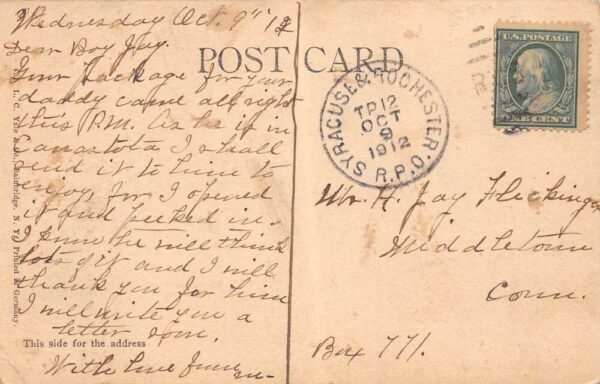 Wednesday Oct. 9" '12
Dear Boy Jay.
Your Package for your
daddy came all right
this P.M. As he is in
Canastota I shall
send it to him to
enjoy, for I opened
it and peeked in.
I know he will think
lots of it and I will
thank you for him
I will write you a
letter soon.
With love from
POST CARD
This side for the address
N. Y. Printed in Germany.
SYRACUSE & ROCHESTER
TR 12
OCT
9
1912
R.P.O.
U.S. POSTAGE
ONE CENT
Mr. H. Jay Flickinger
Middletown
Conn.
Box 771.